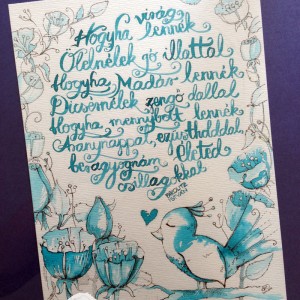 Hogyha virág lennék
Ölelnélek jó illattal
Hogyha Madár lennék
Dicsérnélek zengő dallal
Hogyha mennybolt lennék
Aranynappal, ezüstholddal,
beragyognám Életed
csillagokkal